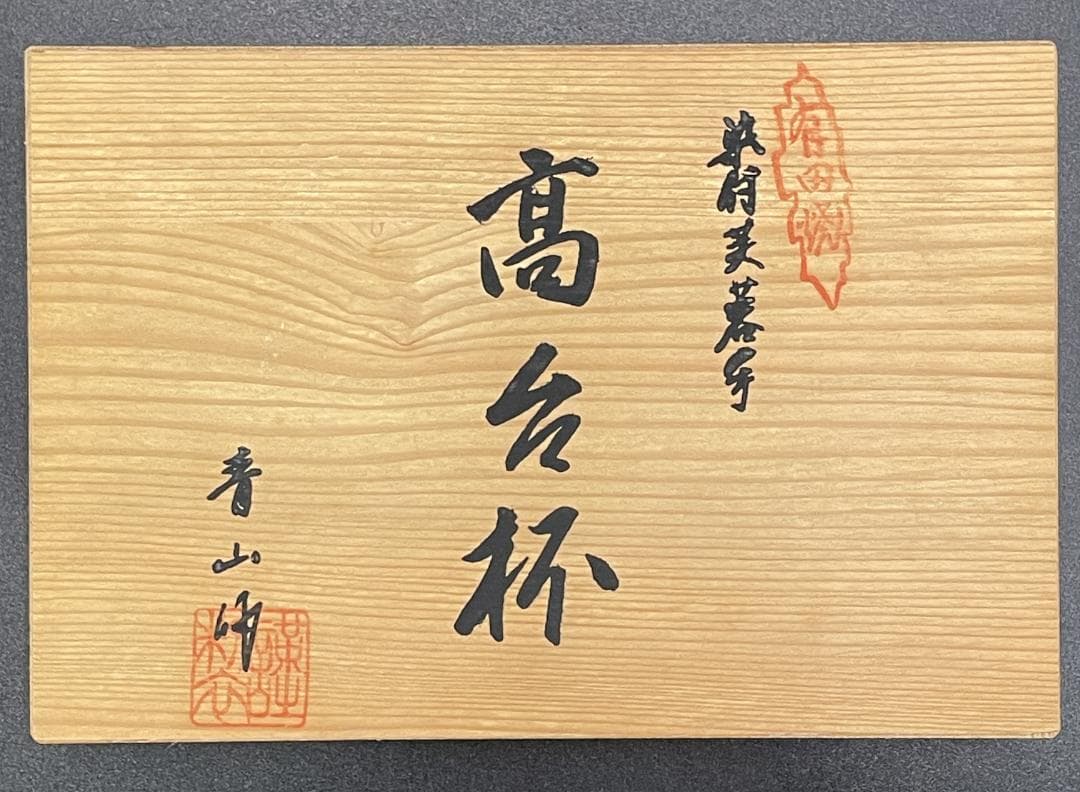 有田焼
染付芙蓉手
高台杯
青山師
謹製